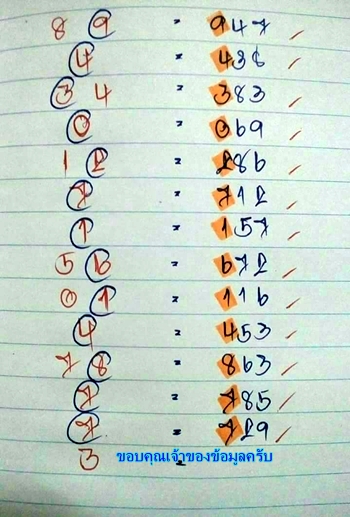 8 9 = 947
4 = 436
3 4 = 383
0 = 069
1 2 = 286
7 = 712
1 = 157
5 6 = 672
0 1 = 116
4 = 453
7 8 = 863
7 = 785
7 = 729
3 = ขอบคุณเจ้าของข้อมูลครับ